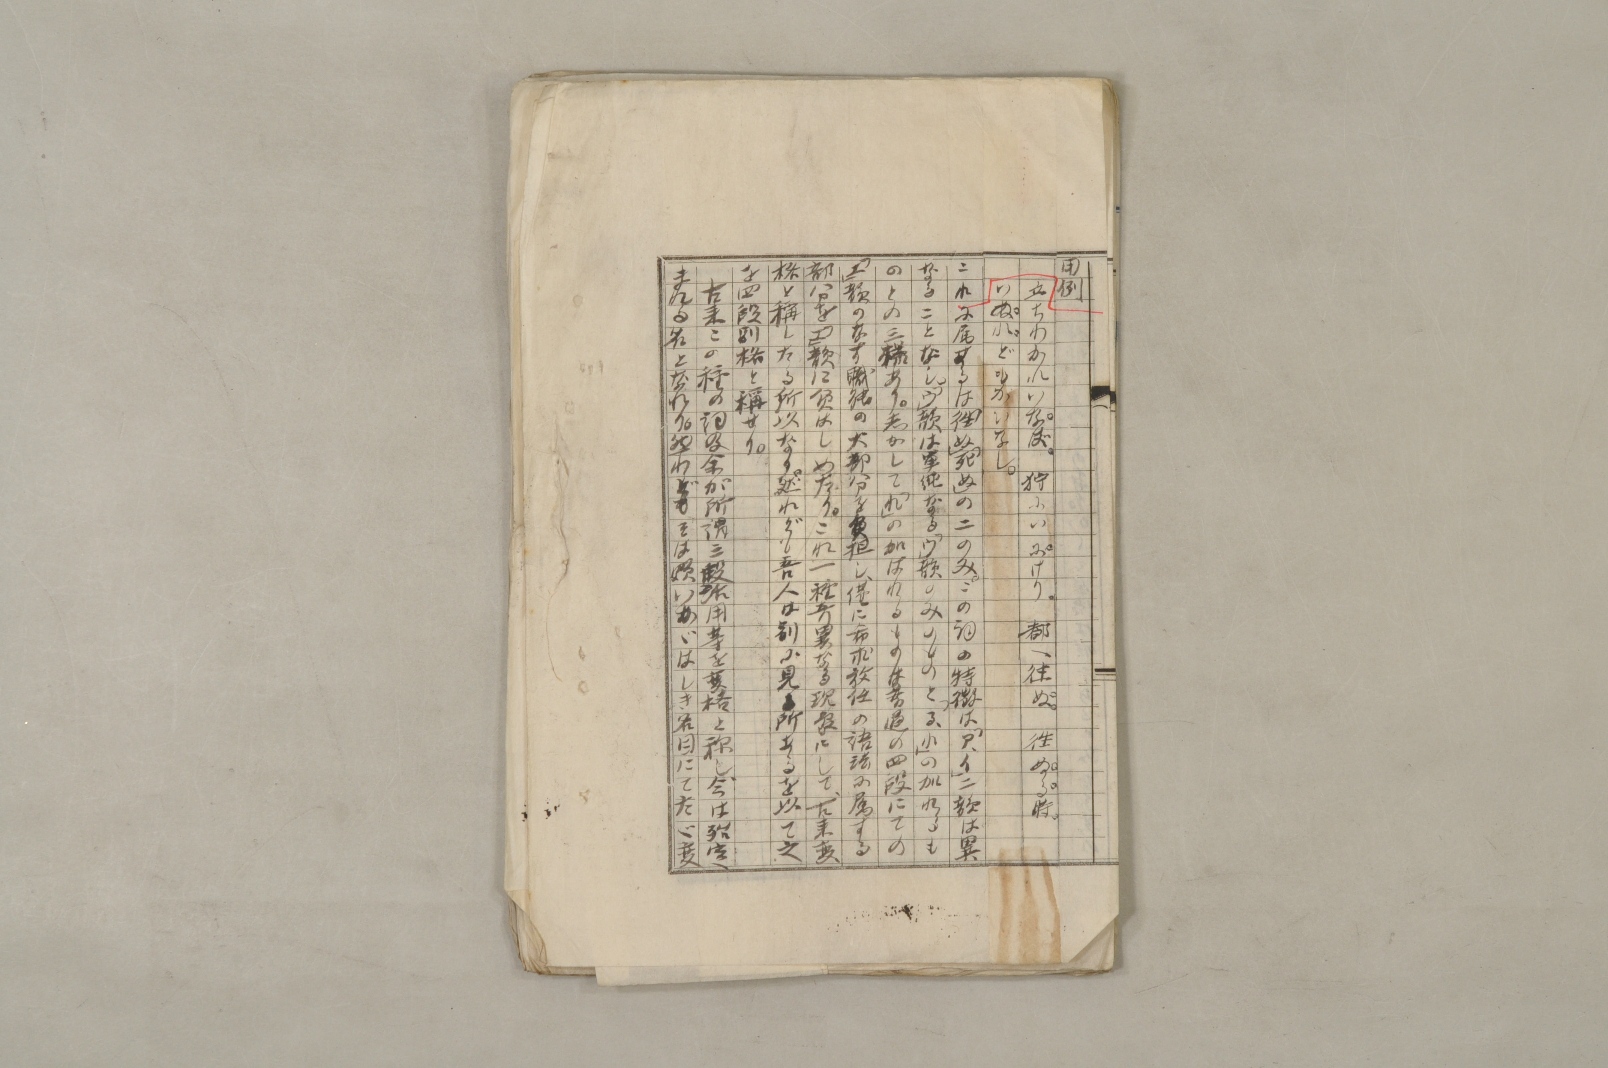 用例
立ちわかれいなば。狩にいにけり。都へ往ぬ。往ぬる時。
いぬれどもかいなし。
これに属するは「往ぬ」「死ぬ」の二のみ。この詞の特徴は「ア」「イ」二韻は異
なることなし。「ウ」韻は単純なる「ウ」韻のみのものと、「る」「れ」の加れるも
のとの三様あり。志かして「れ」の加はれるものは普通の四段にての
「エ」韻のなす職能の大部分を負担し、僅に希求放任の語法に属する
部分を「エ」韻に領はしめたり。これ一種奇異なる現象にして、古来変
格と称したる所以なり。然れども吾人は別に見る所あるを以て之
を四段別格と称せり。
古来この種の詞及余が所謂三段活用等を変格と称し、今は殆定
まれる名となれり。然れどもそは願いあどはしき名目にてたゞ変